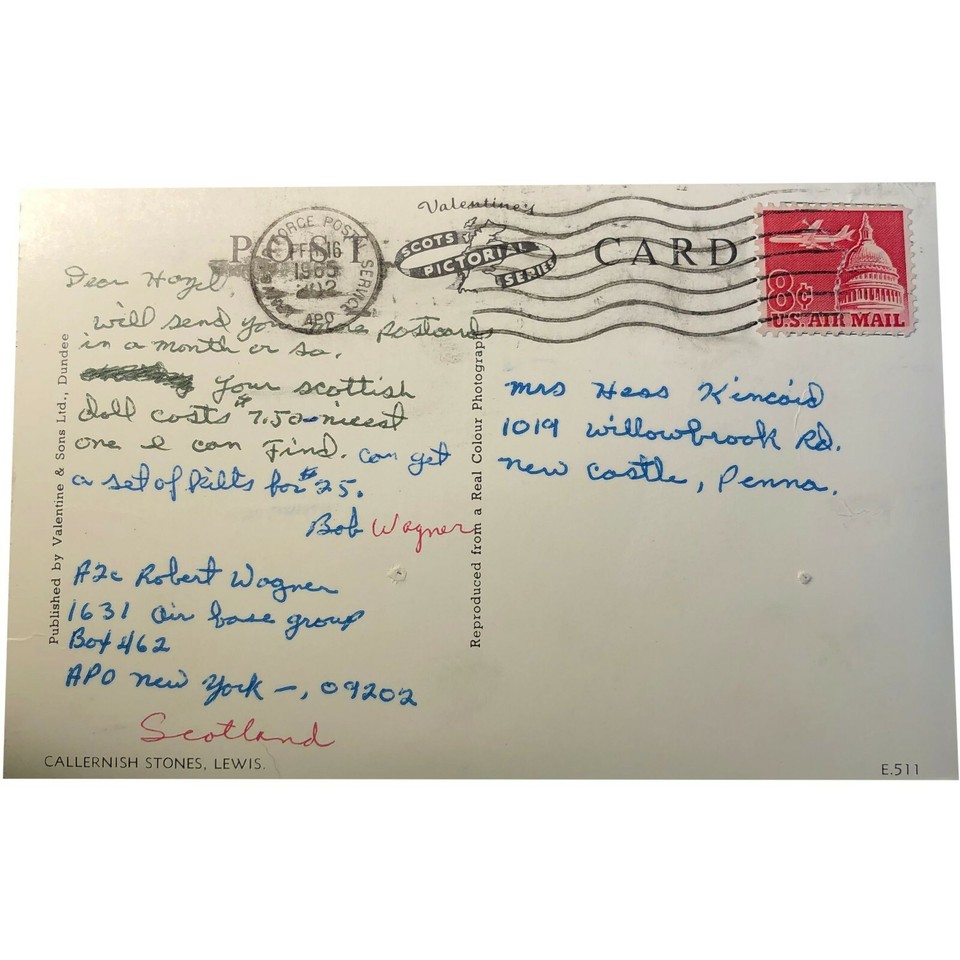 POST CARD
Valentine's
SCOTS
PICTORIAL
SERIES
FORCE POSTAL SERVICE
FEB 16
1965
APO
8¢
U.S. AIR MAIL
Dear Hazel,
will send you postcards
in a month or so.
your scottish
doll costs $7.50 - nicest
one I can Find. can get
a set of kilts for $25.
Bob Wagner
A2c Robert Wagner
1631 air base group
Box 462
APO new York -, 09202
Scotland
CALLERNISH STONES, LEWIS.
Published by Valentine & Sons Ltd., Dundee
Reproduced from a Real Colour Photograph
mrs Hess Kincaid
1019 willowbrook Rd.
new castle, Penna.
E.511